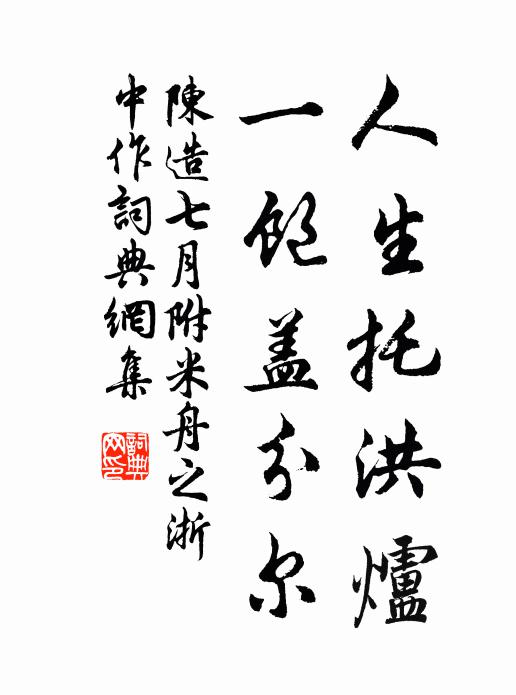 人生托洪爐
一飽盖分尔
陳造七月附米舟之浙
中作詞典網集
詞典网印